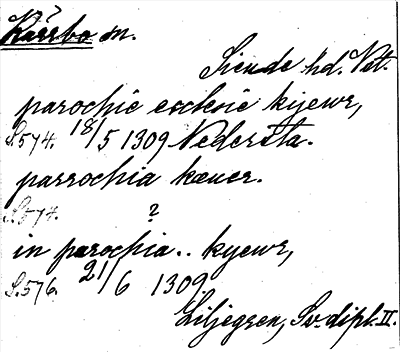 Kärrbo sn.
Siende hd. Vst.
parochie ecclesie kyewr,
S.574. 18/5 1309 Nedersta.
parrochia kæuer.
S.574. ?
in parochia.. kyewr,
S.576. 21/6 1309.
Liljegren, Sv. dipl. II.